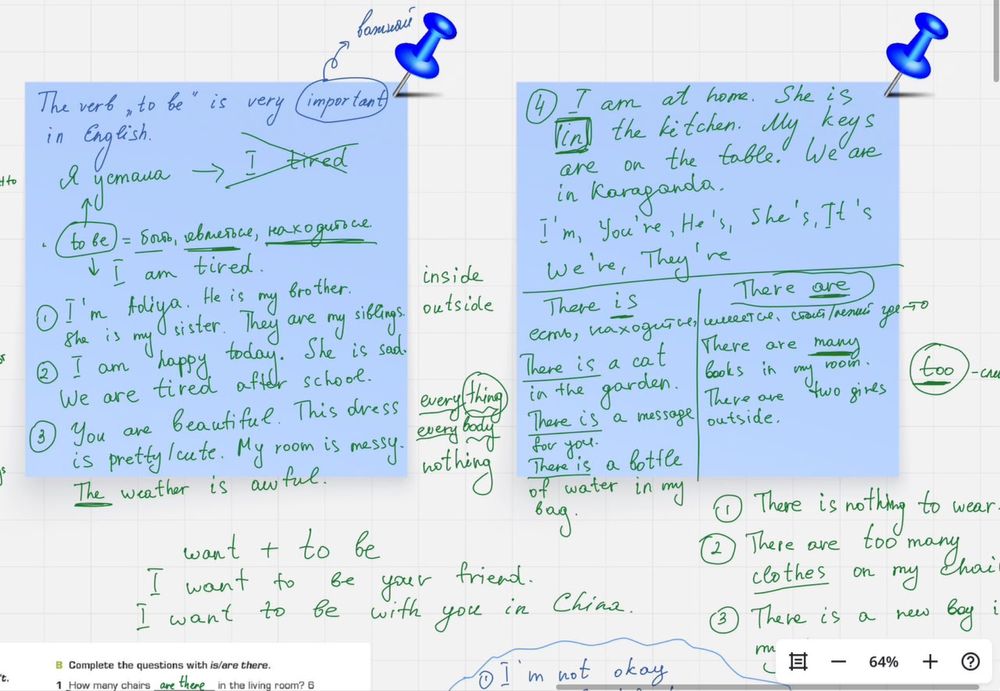 важный
The verb „to be" is very important
in English.
Я устала → I tired
to be = быть, являться, находиться
I am tired.
① I'm Adiya. He is my brother.
She is my sister. They are my siblings.
② I am happy today. She is sad.
We are tired after school.
③ You are beautiful. This dress
is pretty/cute. My room is messy.
The weather is awful.
inside
outside
everything
everybody
nothing
④ I am at home. She is
in the kitchen. My keys
are on the table. We are
in Karaganda.
I'm, You're, He's, She's, It's
We're, They're
There is
есть, находится,
There is a cat
in the garden.
There is a message
for you.
There is a bottle
of water in my
bag.
There are
имеется, стоит/лежит где-то
There are many
books in my room.
There are two girls
outside.
too
want + to be
I want to be your friend.
I want to be with you in China.
① There is nothing to wear.
② There are too many
clothes on my chair
③ There is a new boy i
B Complete the questions with is/are there.
1 How many chairs are there in the living room? 6
① I'm not okay
64%